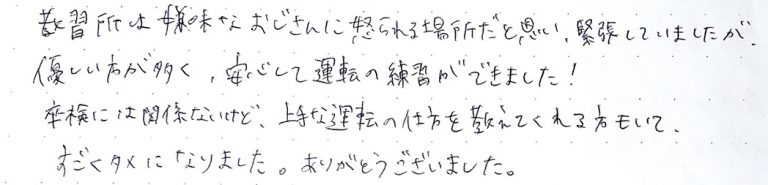 教習所は嫌味なおじさんに怒られる場所だと思い、緊張していましたが、
優しい方が多く、安心して運転の練習ができました！
卒検には関係ないけど、上手な運転の仕方を教えてくれる方もいて、
すごくタメになりました。ありがとうございました。